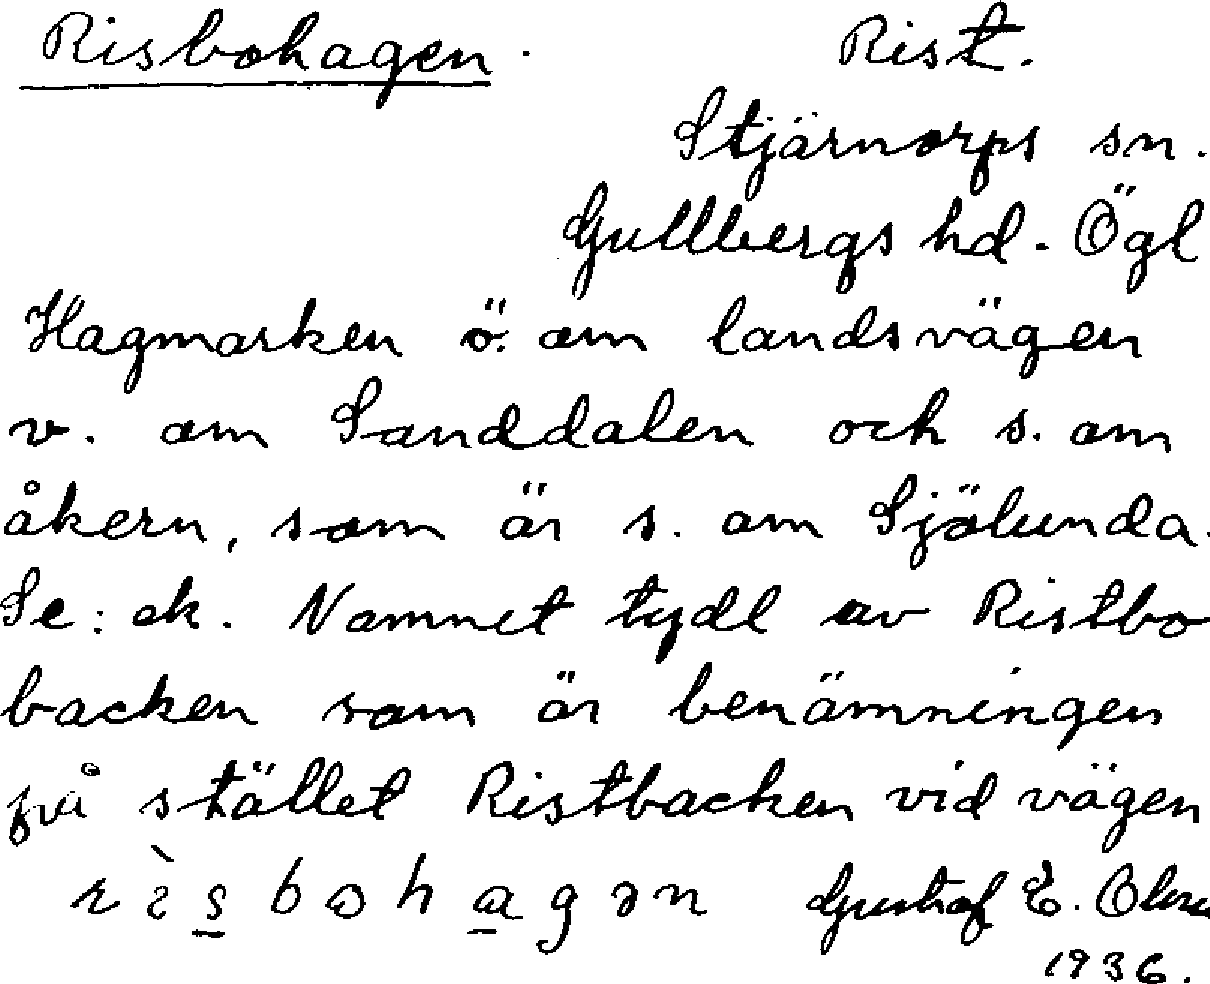 Risbohagen. Rist.
Stjärnorps sn.
Gullbergs hd. Ögl
Hagmarken ö. om landsvägen
v. om Sanddalen och s. om
åkern, som är s. om Sjölunda.
Se: ek. Namnet tydl av Ristbo
backen som är benämningen
på stället Ristbacken vid vägen
Gustaf E. Olss
1936.